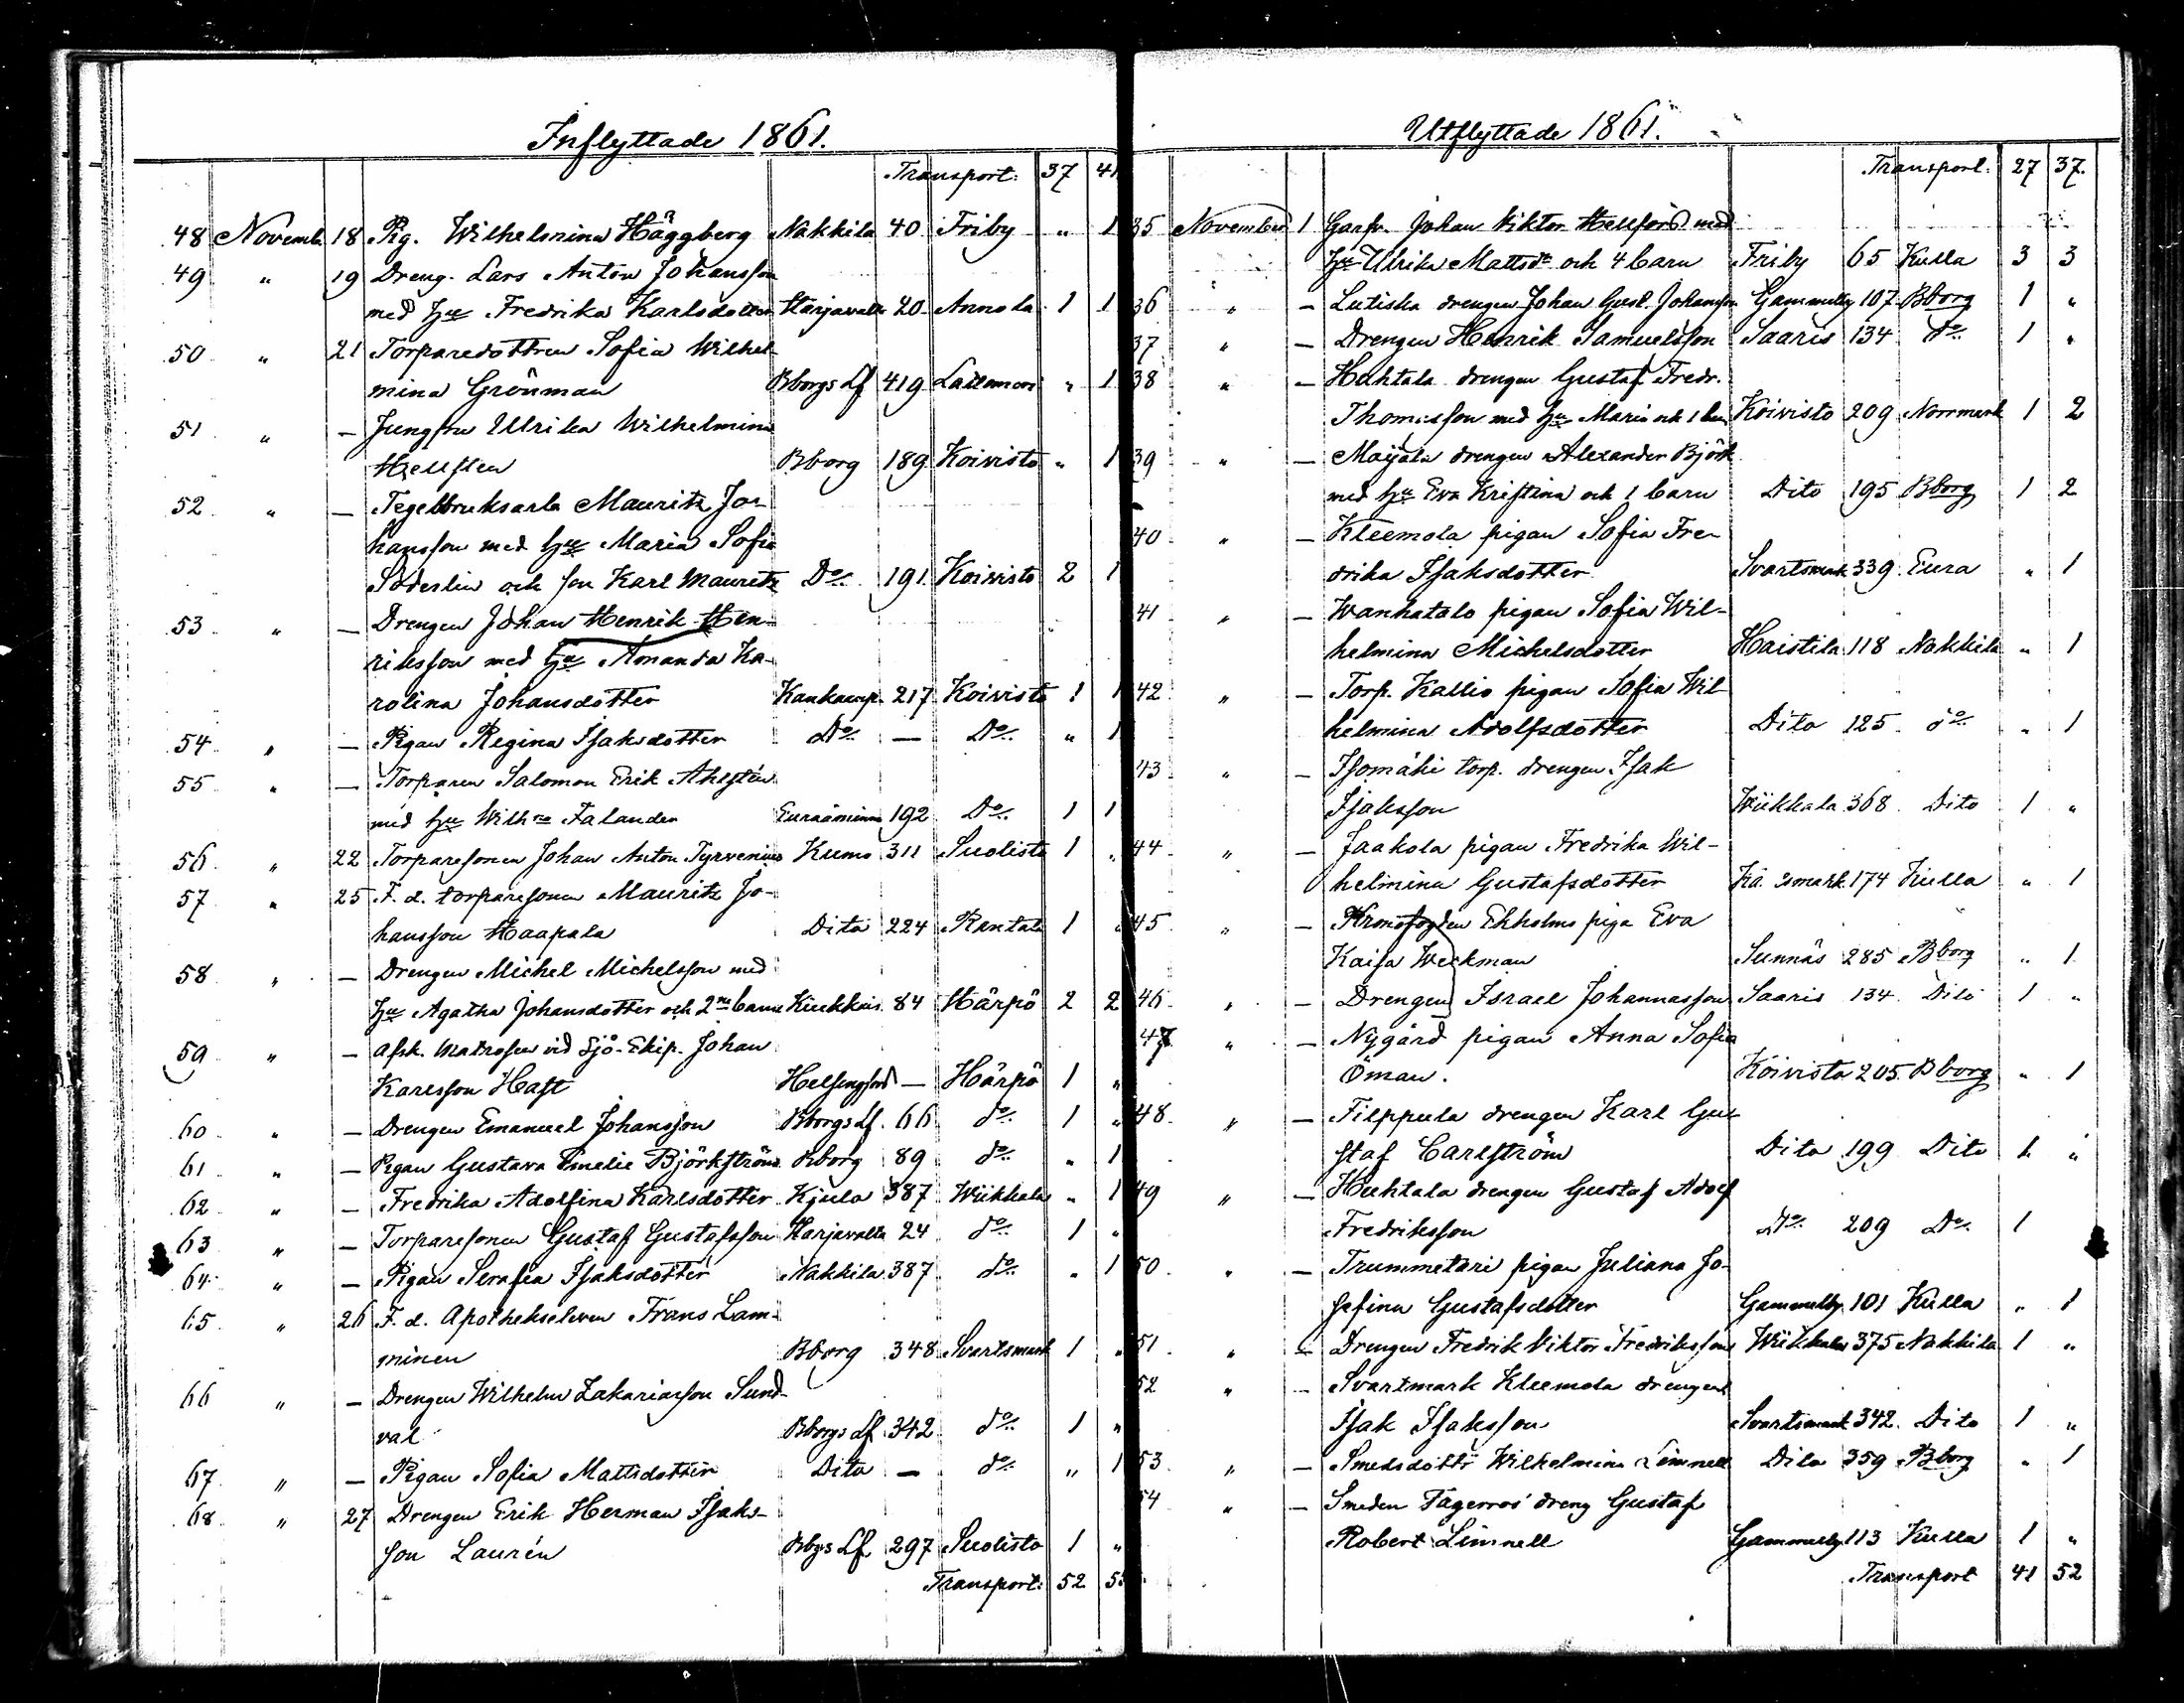 Inflyttade 1861.
Transport: 37 41
48 Novemb. 18 Pig. Wilhelmina Häggberg Nakkila 40 Friby " 1
49 " 19 Dreng. Lars Anton Johansson
med hu Fredrika Karlsdotter Harjavalta 20 Annola 1 1
50 " 21 Torparedottren Sofia Wilhel-
mina Grönman Bborgs Lf 419 " 1
51 " — Jungfru Ulrika Wilhelmina
Hellsten Bborg 189 Koivisto " 1
52 " — Tegelbruksarb. Mauritz Jo-
hansson med hu Maria Sofia
Söderlin och son Karl Mauritz Do 191 Koivisto 2 1
53 " — Drengen Johan Henrik Hen-
riksson med hu Amanda Ka-
rolina Johansdotter Kankaanp. 217 Koivisto 1 1
54 " — Pigan Regina Isaksdotter Do — Do " 1
55 " — Torparen Salomon Erik Ahlstén
med hu Wilhna Falander Euraåminne 192 Do 1 1
56 " 22 Torparesonen Johan Anton Tyrvenius Kumo 311 Suolisto 1 "
57 " 25 F. d. torparesonen Mauritz Jo-
hansson Haapala Dito 224 Rantala 1 "
58 " — Drengen Michel Michelsson med
hu Agatha Johansdotter och 2ne barn Kiukkais 84 Härpö 2 2
59 " — Afsk. Matrosen vid Sjö-Ekip. Johan
Karlsson Haft Helsingfors — Härpö 1 "
60 " — Drengen Emanuel Johansson Bborgs Lf. 66 do 1 "
61 " — Pigan Gustava Emelie Björkström Bborg 89 do " 1
62 " — Fredrika Adolfina Karlsdotter Kjulo 387 Wiikkala " 1
63 " — Torparesonen Gustaf Gustafsson Harjavalta 24 do 1 "
64 " — Pigan Serafia Isaksdotter Nakkila 387 do " 1
65 " 26 F. d. Apothekseleven Frans Lam-
minen Bborg 348 Svartsmark 1 "
66 " — Drengen Wilhelm Zakariasson Sund-
val Bborgs Lf 342 do 1 "
67 " — Pigan Sofia Mattsdotter Dito — do " 1
68 " 27 Drengen Erik Herman Isaks-
son Laurén Bbgs Lf. 297 Suolisto 1 "
Transport: 52 55
Utflyttade 1861.
Transport: 27 37.
35 November 1 Garfv. Johan Viktor Hellfors med
hu Ulrika Mattsdr och 4 barn Friby 65 Kulla 3 3
36 " — Lutiska drengen Johan Gust. Johansson Gammelby 107 Bborg 1 "
37 " — Drengen Henrik Samuelsson Saaris 134 do 1 "
38 " — Huhtala drengen Gustaf Fredr.
Thomasson med hu Maria och 1 barn Koivisto 209 Norrmark 1 2
39 " — Mayala drengen Alexander Björk
med hu Eva Kristina och 1 barn Dito 195 Bborg 1 2
40 " — Kleemola pigan Sofia Fre-
drika Isaksdotter Svartsmark 339 Eura " 1
41 " — Wanhatalo pigan Sofia Wil-
helmina Michelsdotter Haistila 118 Nakkila " 1
42 " — Torp. Kallio pigan Sofia Wil-
helmina Adolfsdotter Dito 125 do " 1
43 " — Isomäki torp. drengen Isak
Isaksson Wiikkala 368 Dito 1 "
44 " — Jaakola pigan Fredrika Wil-
helmina Gustafsdotter 174 Kulla " 1
45 " — Kronofogden Ekholms piga Eva
Kaisa Weckman Sunnäs 285 Bborg " 1
46 " — Drengen Israel Johannasson Saaris 134 Dito 1 "
47 " — Nygård pigan Anna Sofia
Öman. Koivisto 205 Bborg " 1
48 " — Filppula drengen Karl Gu-
staf Carlström Dito 199 Dito 1 "
49 " — Huhtala drengen Gustaf Adolf
Fredriksson Do 209 Do 1
50 " — Trummetäri pigan Juliana Jo-
sefina Gustafsdotter Gammelby 101 Kulla " 1
51 " — Drengen Fredrik Viktor Fredriksson Wiikkala 375 Nakkila 1 "
52 " — Svartmark Kleemola drengen
Isak Isaksson Svartsmark 342 Dito 1 "
53 " — Smedsdottr Wilhelmina Limnell Dito 359 Bborg " 1
54 " — Smeden Fagerros' dreng Gustaf
Robert Limnell Gammelby 113 Kulla 1 "
Transport 41 52